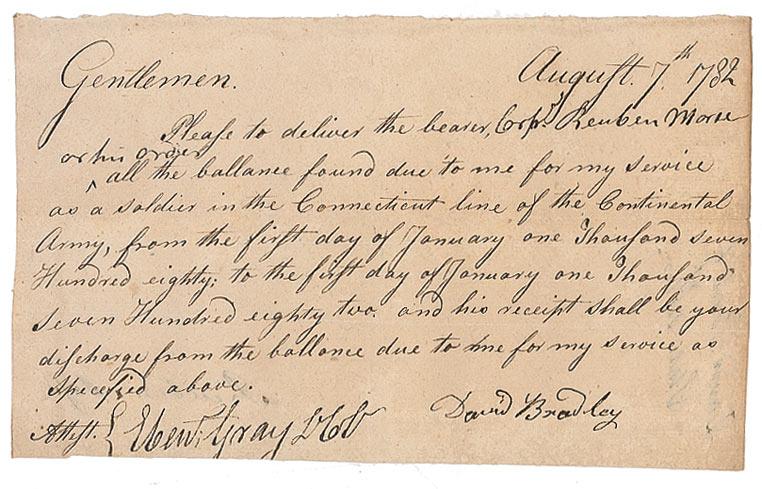 Gentlemen. August. 7th. 1782
Please to deliver the bearer, Corpl. Reuben Morse
or his order
^ all the ballance found due to me for my service
as a soldier in the Connecticut line of the Continental
Army, from the first day of January one Thousand seven
Hundred eighty; to the first day of January one Thousand
seven Hundred eighty two. and his receipt shall be your
discharge from the ballance due to me for my service as
specified above.
David Bradley
Attest. { Ebenr. Gray Lt Col